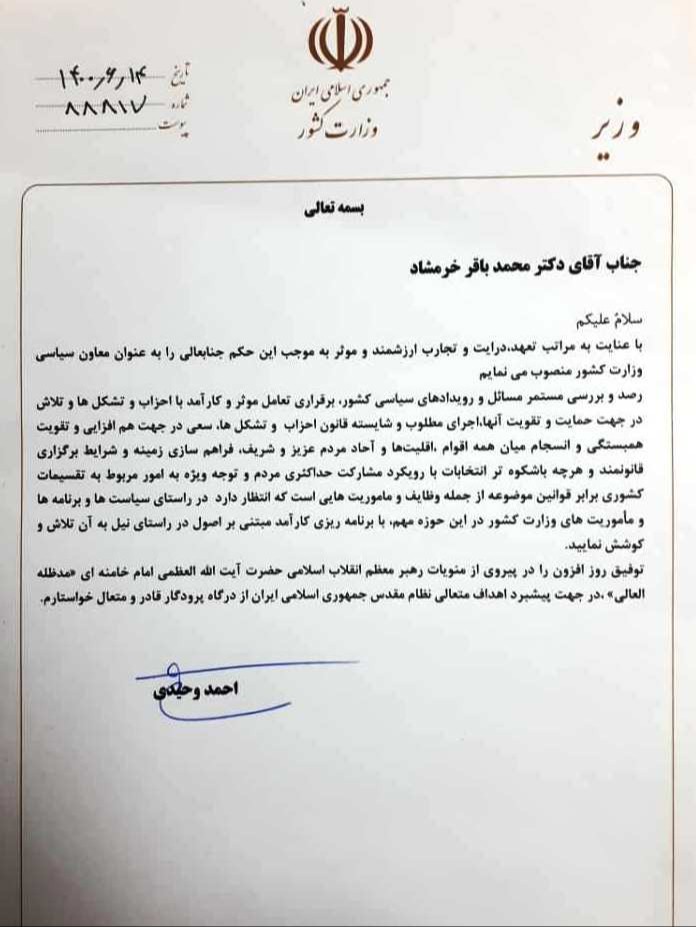 جمهوری اسلامی ایران
وزارت کشور
وزیر
تاریخ ۱۴۰۰/۶/۱۴
شماره ۸۸۸۱۷
پیوست
بسمه تعالی
جناب آقای دکتر محمد باقر خرمشاد
سلامُ علیکم
با عنایت به مراتب تعهد،درایت و تجارب ارزشمند و موثر به موجب این حکم جنابعالی را به عنوان معاون سیاسی
وزارت کشور منصوب می نمایم
رصد و بررسی مستمر مسائل و رویدادهای سیاسی کشور، برقراری تعامل موثر و کارآمد با احزاب و تشکل ها و تلاش
در جهت حمایت و تقویت آنها،اجرای مطلوب و شایسته قانون احزاب و تشکل ها، سعی در جهت هم افزایی و تقویت
همبستگی و انسجام میان همه اقوام ،اقلیت‌ها و آحاد مردم عزیز و شریف، فراهم سازی زمینه و شرایط برگزاری
قانونمند و هرچه باشکوه تر انتخابات با رویکرد مشارکت حداکثری مردم و توجه ویژه به امور مربوط به تقسیمات
کشوری برابر قوانین موضوعه از جمله وظایف و ماموریت هایی است که انتظار دارد در راستای سیاست ها و برنامه ها
و مأموریت های وزارت کشور در این حوزه مهم، با برنامه ریزی کارآمد مبتنی بر اصول در راستای نیل به آن تلاش و
کوشش نمایید.
توفیق روز افزون را در پیروی از منویات رهبر معظم انقلاب اسلامی حضرت آیت الله العظمی امام خامنه ای «مدظله
العالی» ،در جهت پیشبرد اهداف متعالی نظام مقدس جمهوری اسلامی ایران از درگاه پرودگار قادر و متعال خواستارم.
احمد وحیدی